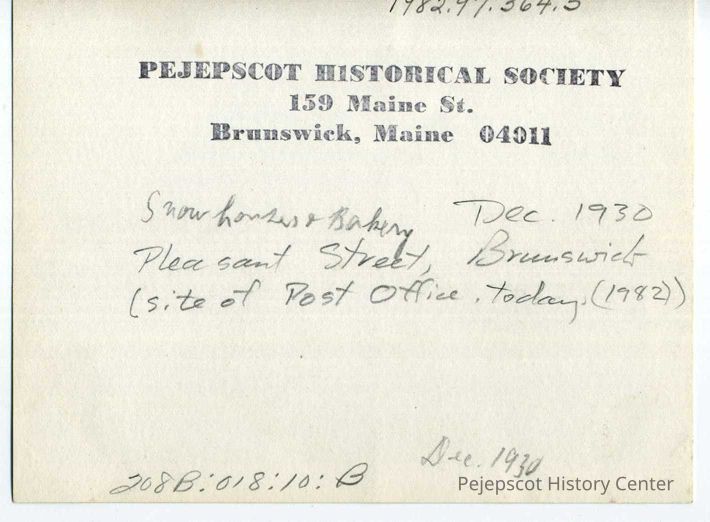 1982.97.364.3
PEJEPSCOT HISTORICAL SOCIETY
159 Maine St.
Brunswick, Maine 04011
Snow houses & Bakery Dec. 1930
Pleasant Street, Brunswick
(site of Post Office, today, (1982))
Dec. 1930
208B:018:10:B
Pejepscot History Center